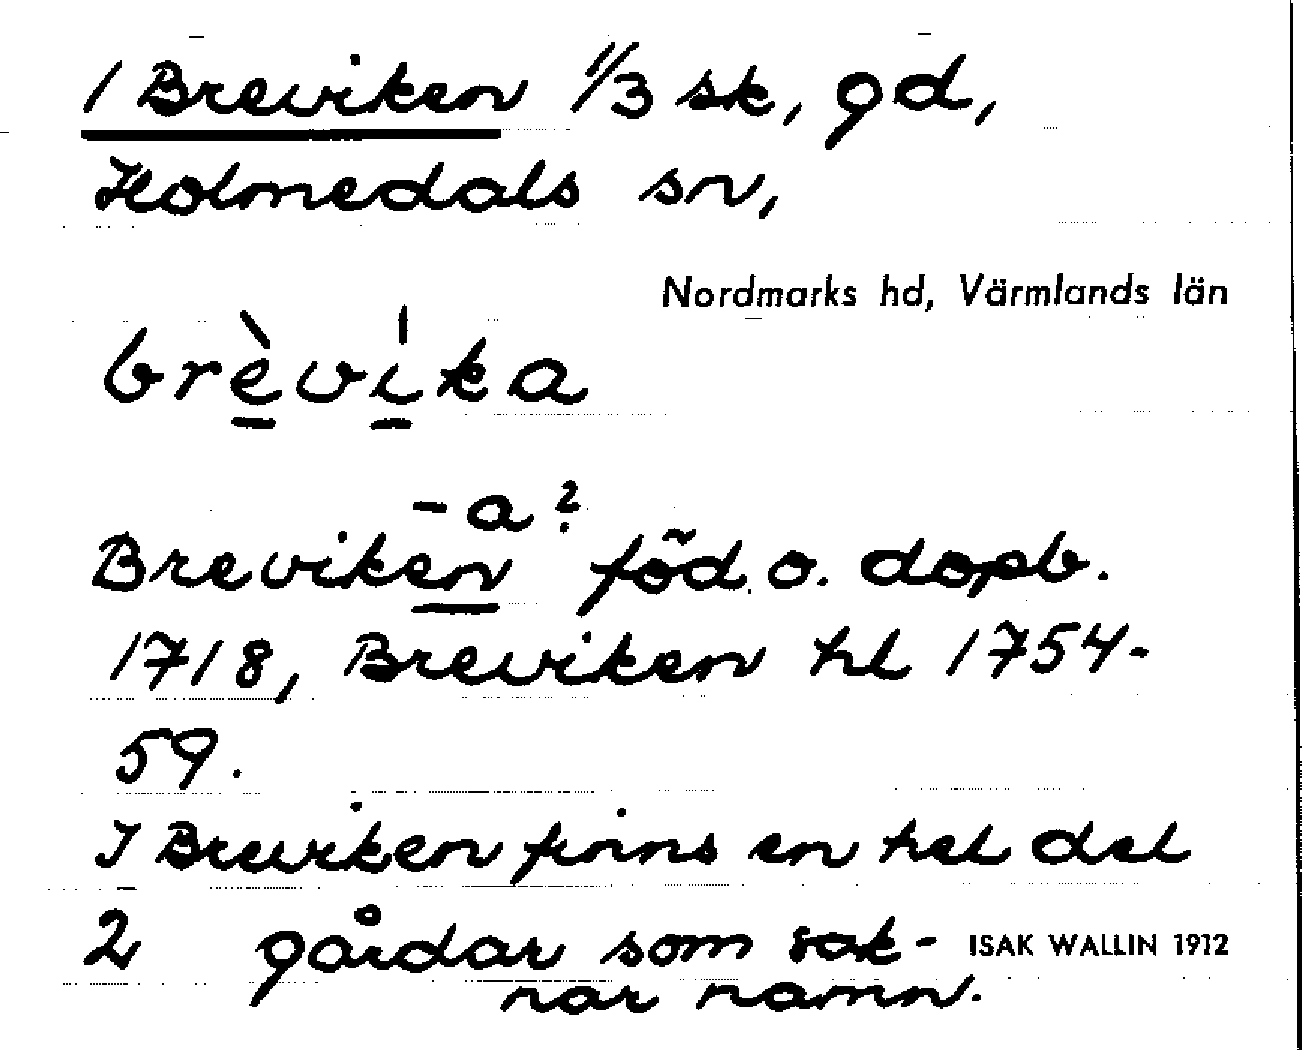 1 Breviken 1/3 sk, gd,
Holmedals sn,
Nordmarks hd, Värmlands län
brèvíka
-a?
Breviken föd. o. dopb.
1718, Breviken hl 1754-
59.
I Breviken finns en hel del
2 gårdar som sak- ISAK WALLIN 1912
nar namn.